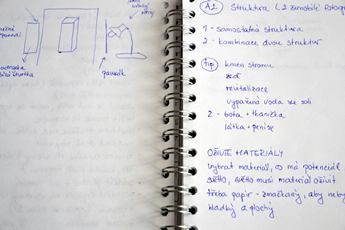 pavouk
A2 Struktura (2 zvětšit) fotogr
1 - samostatná struktura
2 - kombinace dvou struktur
tip kmen stromu
zeď
revitalizace
vypařená voda ze soli
2 - bota + tkanička
látka + peníze
OŽIVIT MATERIÁLY
vybrat materiál, co má potenciál
světlo musí materiál oživit
třeba papír - zmačkaný, aby neby
hladký a plochý